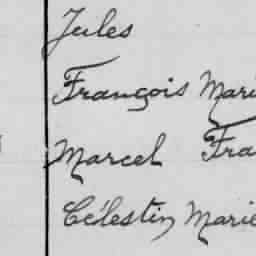 Jules
François Mari
Marcel Fra
Célestin Marie